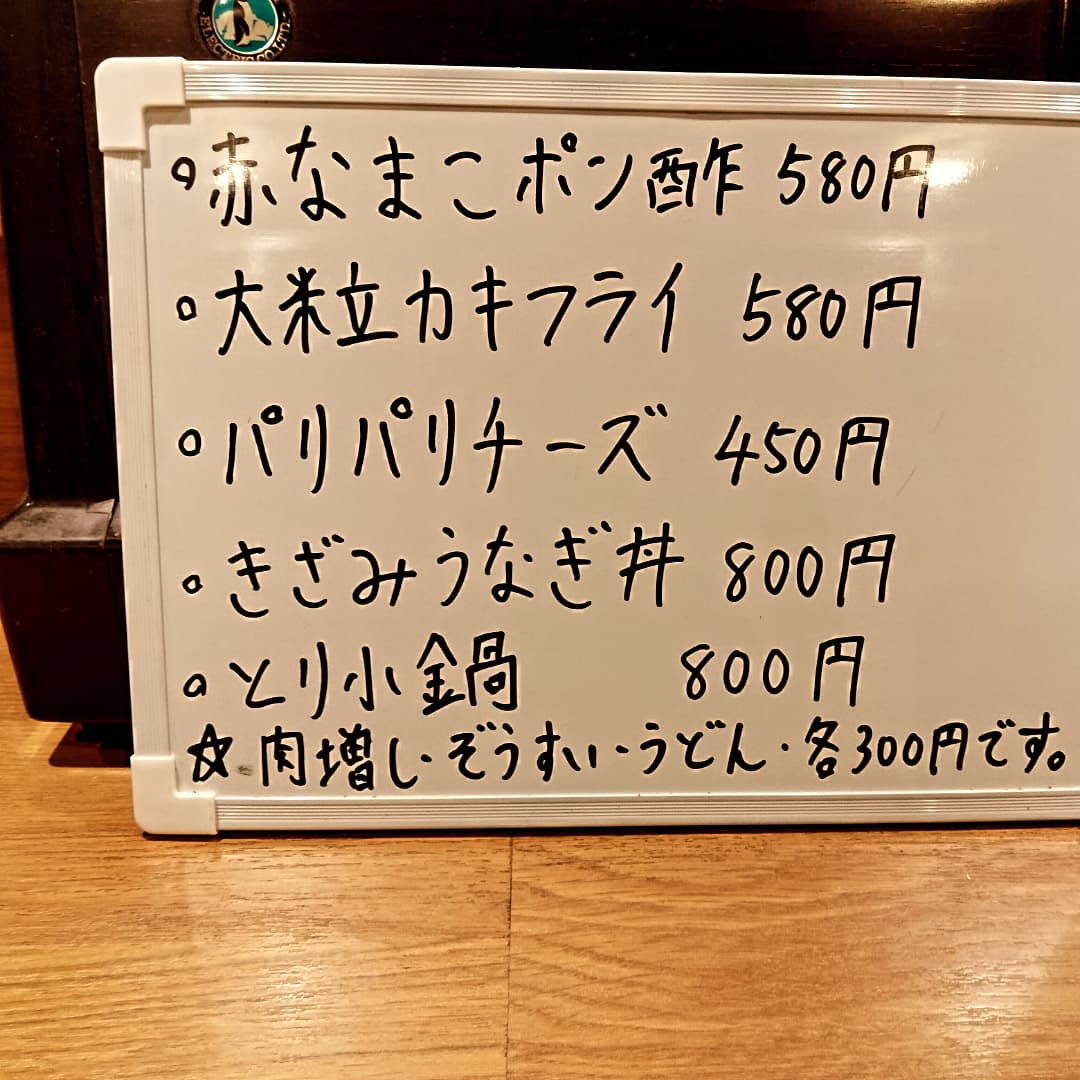 ELECTRIC CO.LTD.
◦赤なまこポン酢 580円
◦大粒カキフライ 580円
◦パリパリチーズ 450円
◦きざみうなぎ丼 800円
◦とり小鍋 800円
☆肉増し・ぞうすい・うどん・各300円です。